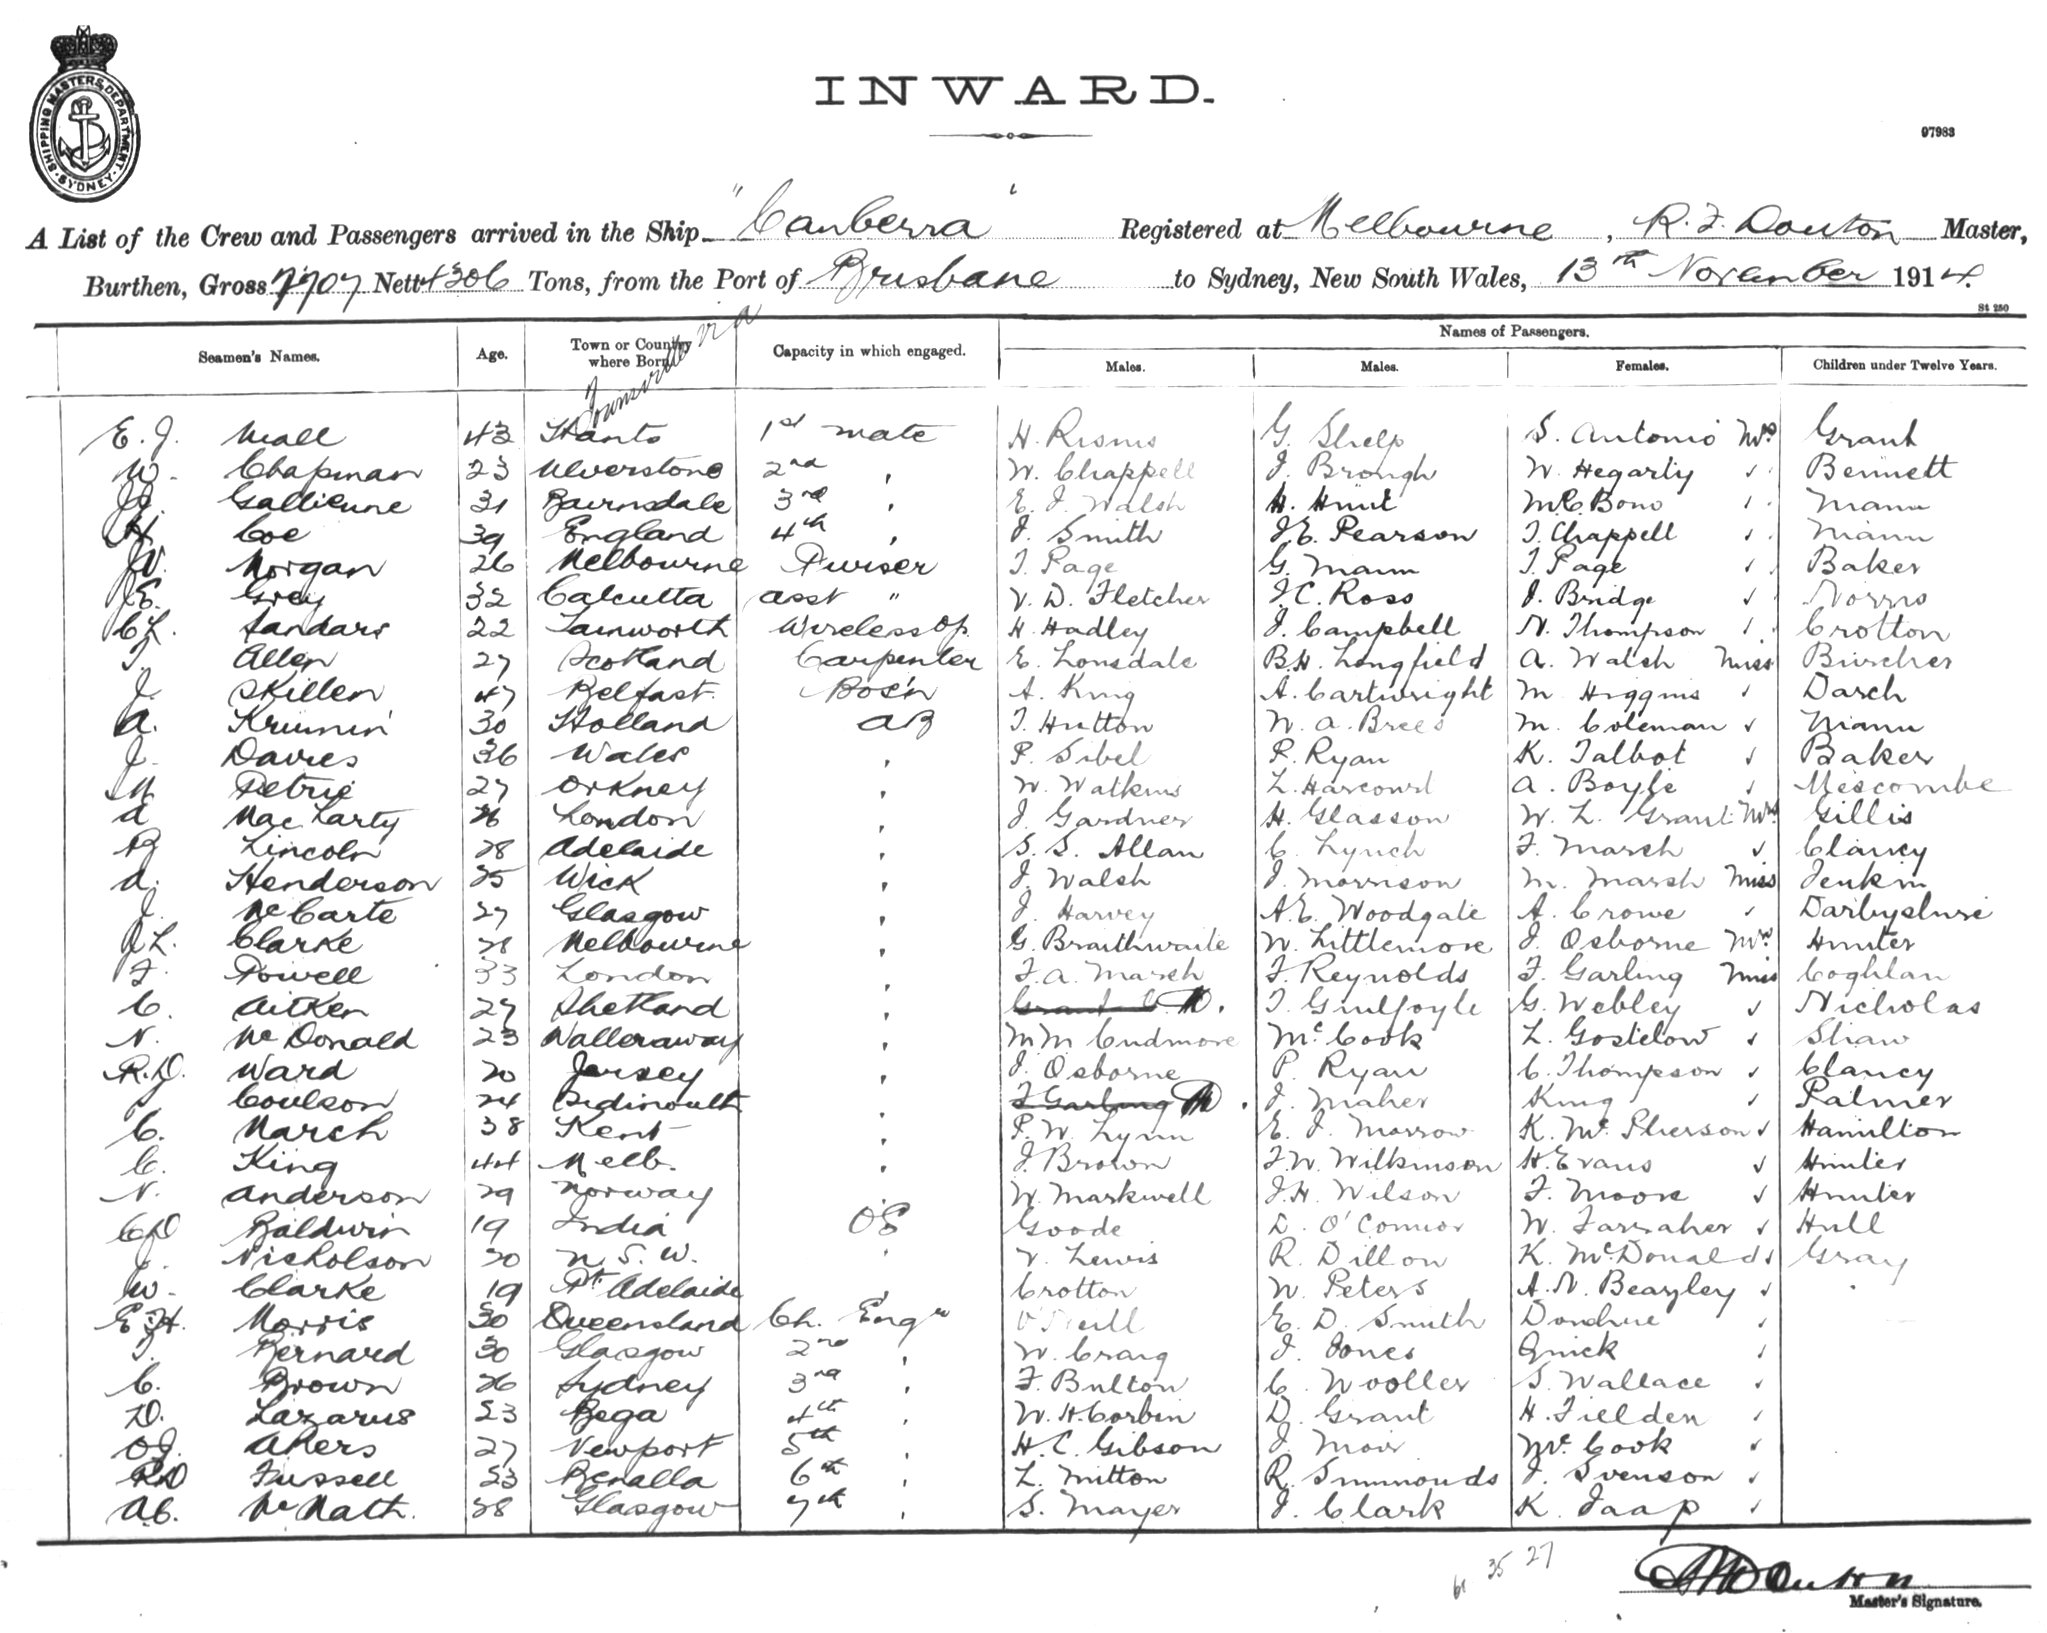 SHIPPING MASTERS DEPARTMENT. SYDNEY
INWARD.
97983
A List of the Crew and Passengers arrived in the Ship "Canberra" Registered at Melbourne, R. F. Douton Master,
Burthen, Gross 7707 Nett 4306 Tons, from the Port of Brisbane to Sydney, New South Wales, 13th November 1914.
St 250
Townsville via
Names of Passengers.
Seamen's Names. Age. Town or Country where Born. Capacity in which engaged. Males. Males. Females. Children under Twelve Years.
E. J. Mall 43 Hants 1st mate H. Risms G. Shelp S. Antonio Mrs Grant
W. Chapman 23 Ulverstone 2nd " W. Chappell J. Brough W. Hegarty " Bennett
Gallienne 31 Bairnsdale 3rd " E. J. Walsh H. Hunt McBono " Mann
H. Coe 39 England 4th " J. Smith J. E. Pearson T. Chappell " Mann
W. Morgan 26 Melbourne Purser T. Page G. Mann T. Page " Baker
E. Grey 32 Calcutta asst " V. D. Fletcher J. C. Ross J. Bridge " Norris
C L. Sandars 22 Tamworth Wireless Op. H. Hadley J. Campbell N. Thompson " Crotton
T. Allen 27 Scotland Carpenter E. Lonsdale B. H. Longfield A. Walsh Miss Burcher
J. Skillen 47 Belfast Bos'n A. King A. Cartwright M Higgins " Darch
A. Krumin 30 Holland AB T. Hutton W. A. Brees M. Coleman " Mann
J. Davies 36 Wales " P. Sibel P. Ryan K. Talbot " Baker
M Petrie 27 Orkney " W. Watkins L. Harcourt A. Boyle " Mescombe
A MacLarty 26 London " J. Gardner H. Glasson W. L. Grant Mrs Gillis
R Lincoln 28 Adelaide " S. S. Allan C. Lynch F. March " Clancy
A. Henderson 25 Wick " J. Walsh J. Morrison M. Marsh Miss Jenkin
J. McCarte 27 Glasgow " J. Harvey A. E. Woodgate A. Crowe " Darbyshire
J L. Clarke 28 Melbourne " G. Braithwaite W. Littlemore J. Osborne Mrs Hunter
F. Powell 33 London " F. A. March F. Reynolds F. Garling Miss Coghlan
C. Aitken 27 Shetland " Grant T. Guilfoyle G. Webley " Nicholas
N. McDonald 23 Walleraway " M M Cudmore McCook L. Gostelow " Shaw
R. D. Ward 20 Jersey " J. Osborne P. Ryan C. Thompson " Clancy
Coulson 24 Sidmouth " F Garling J. Maher King " Palmer
C. March 38 Kent " P. W. Lynn E. J. Morrow K. McPherson " Hamilton
C. King 44 Melb. " J. Brown F. W. Wilkinson H. Evans " Hunter
N. Anderson 29 Norway W. Markwell J. H. Wilson F. Moore " Hunter
C D Baldwin 19 India OS Goode D. O'Connor W. Farraher " Hull
J. Nicholson 20 N. S. W. " V. Lewis R. Dillon K. McDonald " Gray
W. Clarke 19 Pt. Adelaide " Crotton W. Peters A. N. Beazley "
E. H. Morris 30 Queensland Ch. Engr O'Neill E. D. Smith Donohue "
T. Bernard 30 Glasgow 2nd " W. Craig J. Jones Quick "
C. Brown 26 Sydney 3rd " F. Bulton C. Wooller S. Wallace "
D. Lazarus 23 Bega 4th " W. H. Corbin D. Grant H. Fielden "
O J. Akers 27 Newport 5th " H. C. Gibson J. Moir McCook "
R D Fussell 23 Benalla 6th " L. Mitton R. Simmonds J. Svenson "
A. C. McNath. 28 Glasgow 7th " S. Mayer J. Clark K. Jaap "
61 35 27
R F Douton
Master's Signature.